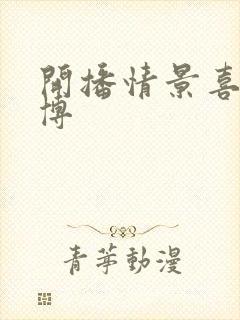 開播情景喜
博
青苹動漫